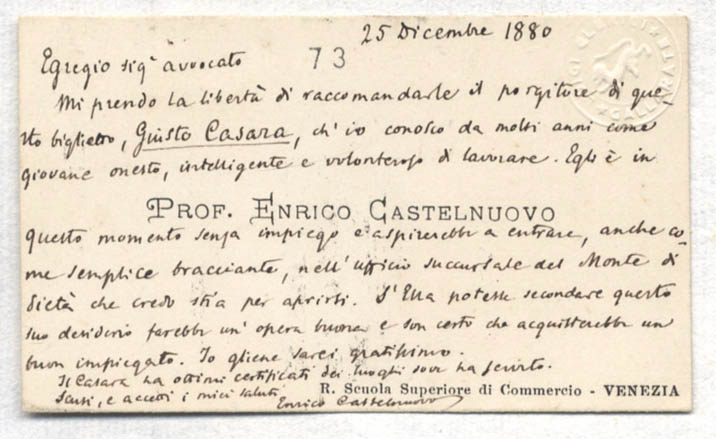 25 Dicembre 1880
73
Egregio sigʳ avvocato
Mi prendo la libertà di raccomandarle il porgitore di que-
sto biglietto, Giusto Casara, ch'io conosco da molti anni come
giovane onesto, intelligente e volonteroso di lavorare. Egli è in
PROF. ENRICO CASTELNUOVO
questo momento senza impiego e aspirerebbe a entrare, anche co-
me semplice bracciante, nell'ufficio succursale del Monte di
Pietà che credo stia per aprirsi. S'Ella potesse secondare questo
suo desiderio farebbe un'opera buona e son certo che acquisterebbe un
buon impiegato. Io gliene sarei gratissimo.
Il Casara ha ottimi certificati dei luoghi dove ha servito.
Scusi, e accetti i miei saluti.
Enrico Castelnuovo
R. Scuola Superiore di Commercio - VENEZIA